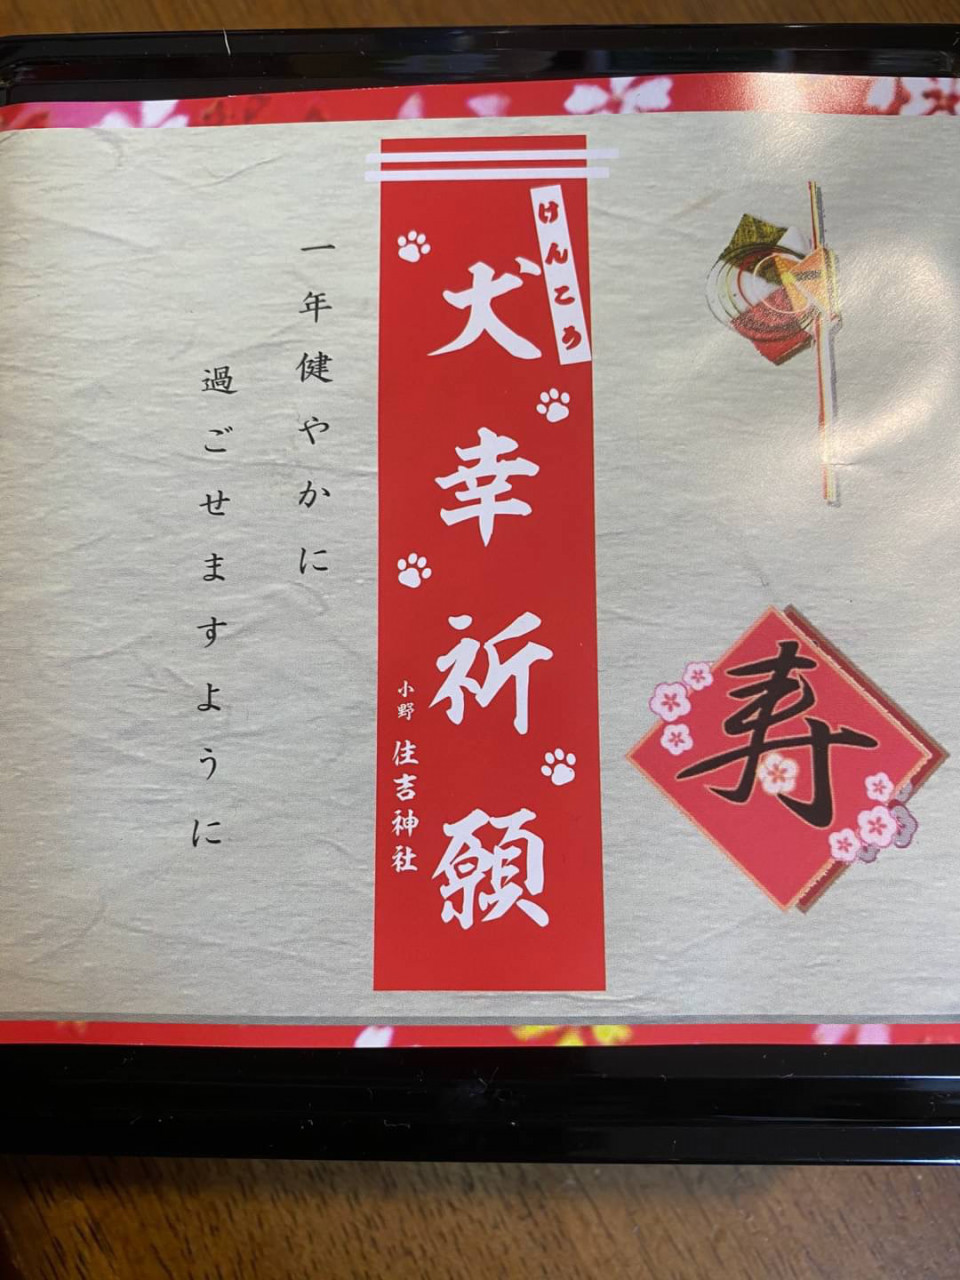 寿
けんこう
犬幸祈願
小野 住吉神社
一年健やかに
過ごせますように